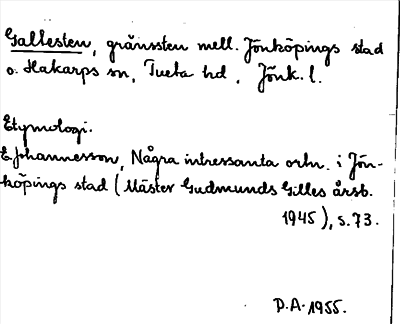 Gallesten, gränssten mell. Jönköpings stad
o. Hakarps sn, Tveta hd, Jönk. l.
Etymologi.
E. Johannesson, Några intressanta ortn. i Jön-
köpings stad (Mäster Gudmunds Gilles årsb.
1945), s. 73.
D.A. 1955.